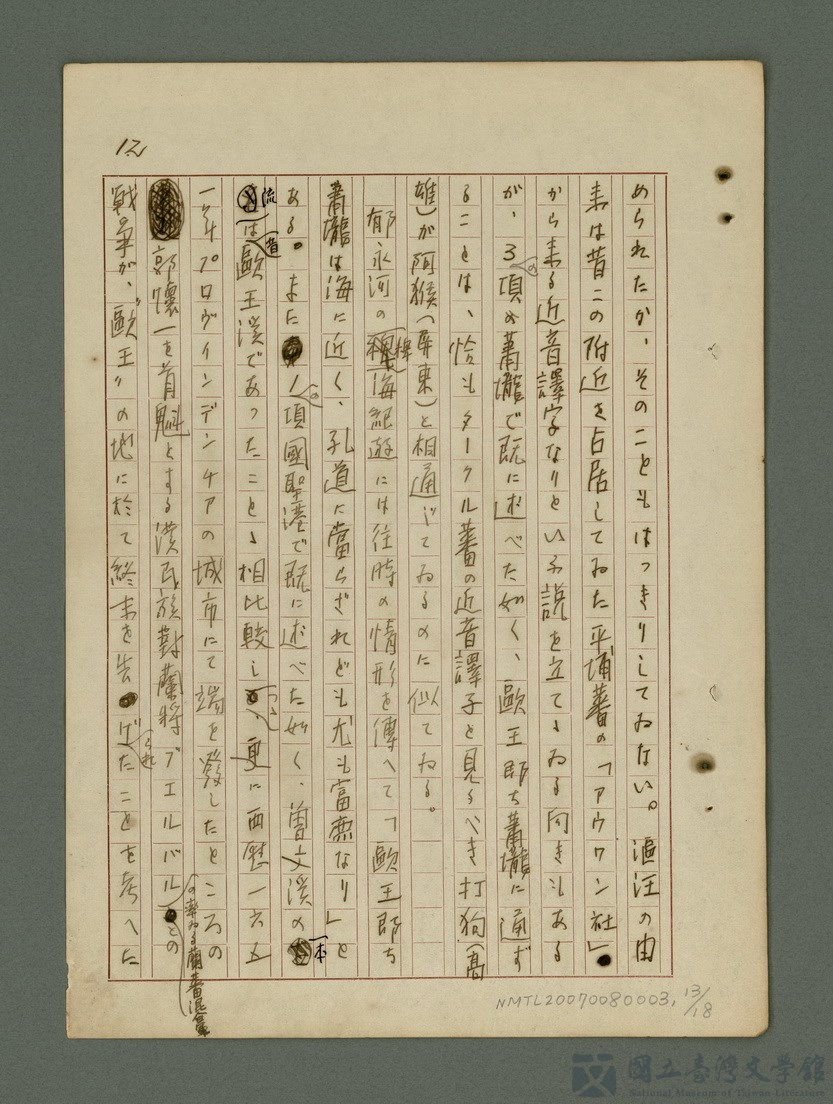 12
められたか、そのこともはっきりしてゐない。漚汪の由
来は昔この附近を占居してゐた平埔蕃の「アウワン社」
から来る近音譯字なりといふ説を立てゝゐる向きもある
が、3の項の蕭壠で既に述べた如く、歐王即ち蕭壠に通ず
ることは、恰もタークル蕃の近音譯字と見るべき打狗(高
雄)が阿猴(屏東)と相通じてゐるのに似てゐる。
郁永河の裨海紀遊には往時の情形を傳へて「歐王即ち
蕭壠は海に近く、孔道に當らざれども尤も富庶なり」と
ある。また1の項國聖港で既に述べた如く、曾文溪の本
流は昔歐王溪であったことゝ相比較しつゝ、更に西曆一六五
一年プロヴィンデンチアの城市にて端を發したところの
郭懷一を首魁とする漢民族對蘭将ブエルバルの率ゐる蘭蕃混合軍との
戦爭が、"歐王"の地に於て終末を告げられたことを考へた
NMTL20070080003, 13/18
國立臺灣文學館
National Museum of Taiwan Literature